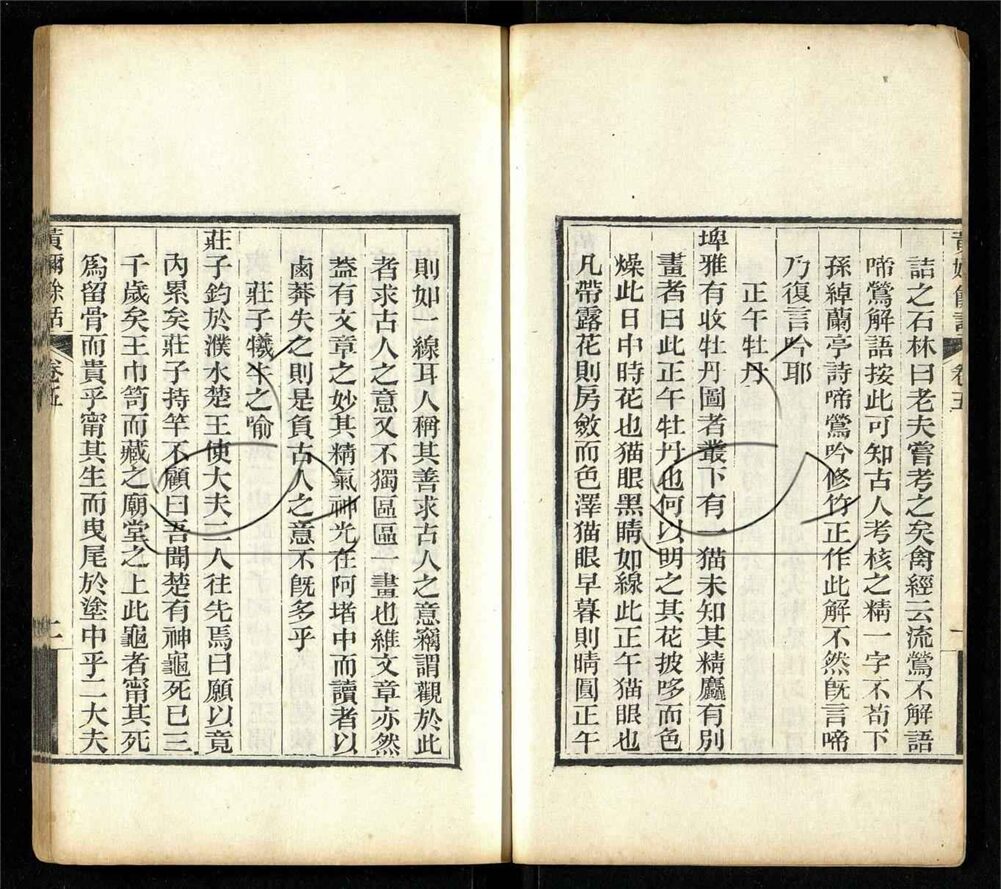 詰之石林曰老夫嘗考之矣禽經云流鶯不解語
啼鶯解語按此可知古人考核之精一字不苟下
孫綽蘭亭詩啼鶯吟修竹正作此解不然旣言啼
乃復言吟耶
正午牡丹
埤雅有收牡丹圖者叢下有一猫未知其精麤有別
畫者曰此正午牡丹也何以明之其花披哆而色
燥此日中時花也猫眼黑睛如線此正午猫眼也
凡帶露花則房斂而色澤猫眼早暮則睛圓正午
卷五
一
則如一線耳人稱其善求古人之意竊謂觀於此
者求古人之意又不獨區區一畫也維文章亦然
葢有文章之妙其精氣神光在阿堵中而讀者以
鹵莽失之則是負古人之意不旣多乎
莊子犧牛之喻
莊子釣於濮水楚王使大夫二人往先焉曰願以竟
內累矣莊子持竿不顧曰吾聞楚有神龜死已三
千歲矣王巾笥而藏之廟堂之上此龜者甯其死
爲留骨而貴乎甯其生而曳尾於塗中乎二大夫
黃嬭餘話
卷五
二